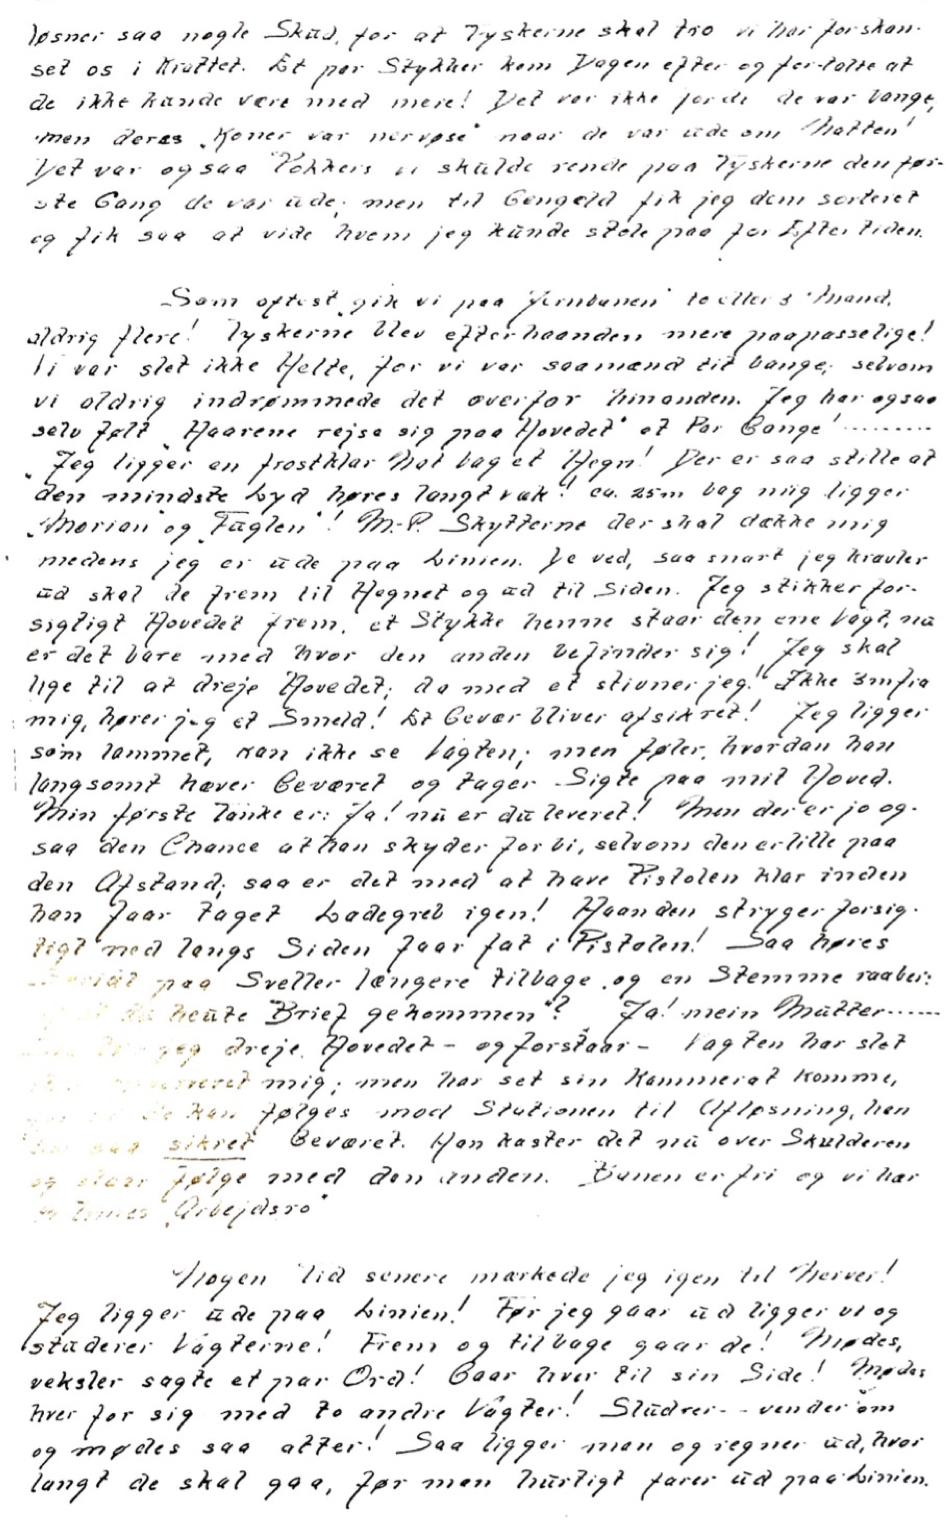 løsner saa nogle Skud, for at Tyskerne skal tro vi har forskan-
set os i Krattet. Et par Stykker kom Dagen efter og fortalte at
de ikke kunde være med mere! Det var ikke fordi de var bange,
men deres „Koner var nervøse" naar de var ude om Natten!
Det var ogsaa Pokkers vi skulde rende paa Tyskerne den før-
ste Gang de var ude; men til Gengæld fik jeg dem sorteret
og fik saa at vide hvem jeg kunde stole paa for Eftertiden.
Som oftest „gik vi paa Jernbanen" to eller 3 Mand,
aldrig flere! Tyskerne blev efterhaanden mere paapasselige!
Vi var slet ikke Helte, for vi var saamænd tit bange; selvom
vi aldrig indrømmede det overfor hinanden. Jeg har ogsaa
selv følt „Haarene rejse sig paa Hovedet" et Par Gange! ---------
„Jeg ligger en frostklar Nat bag et Hegn! Der er saa stille at
den mindste Lyd høres langt væk! ca. 25m bag mig ligger
„Marian" og „Fuglen"! M.-P. Skytterne der skal dække mig
medens jeg er ude paa Linien. De ved, saa snart jeg kravler
ud skal de frem til Hegnet og ud til Siden. Jeg stikker for-
sigtigt Hovedet frem, et Stykke henne staar den ene Vagt, nu
er det bare med hvor den anden befinder sig! Jeg skal
lige til at dreje Hovedet; da med et stivner jeg! Ikke 3m fra
mig, hører jeg et Smeld! Et Gevær bliver afsikret! Jeg ligger
som lammet, kan ikke se Vagten; men føler, hvordan han
langsomt hæver Geværet og tager Sigte paa mit Hoved.
Min første Tanke er: Ja! nu er du leveret! Men der er jo og-
saa den Chance at han skyder forbi, selvom den er lille paa
den Afstand; saa er det med at have Pistolen klar inden
han faar taget Ladegreb igen! Haanden stryger forsig-
tigt ned langs Siden faar fat i Pistolen! Saa høres
paa Sveller længere tilbage og en Stemme raaber:
du heute Brief gekommen"? Ja! mein Mutter------
jeg dreje Hovedet - og forstaar - Vagten har slet
mig; men har set sin Kammerat komme,
de kan følges mod Stationen til Afløsning, han
har saa sikret Geværet. Han kaster det nu over Skulderen
og slaar Følge med den anden. Banen er fri og vi har
Times „Arbejdsro"
Nogen Tid senere mærkede jeg igen til Nerver!
Jeg ligger ude paa Linien! Før jeg gaar ud ligger vi og
studerer Vagterne! Frem og tilbage gaar de! Mødes,
veksler sagte et par Ord! Gaar hver til sin Side! Mødes
hver for sig med to andre Vagter! Sludrer -- vender om
og mødes saa atter! Saa ligger man og regner ud, hvor
langt de skal gaa, før man hurtigt farer ud paa Linien.